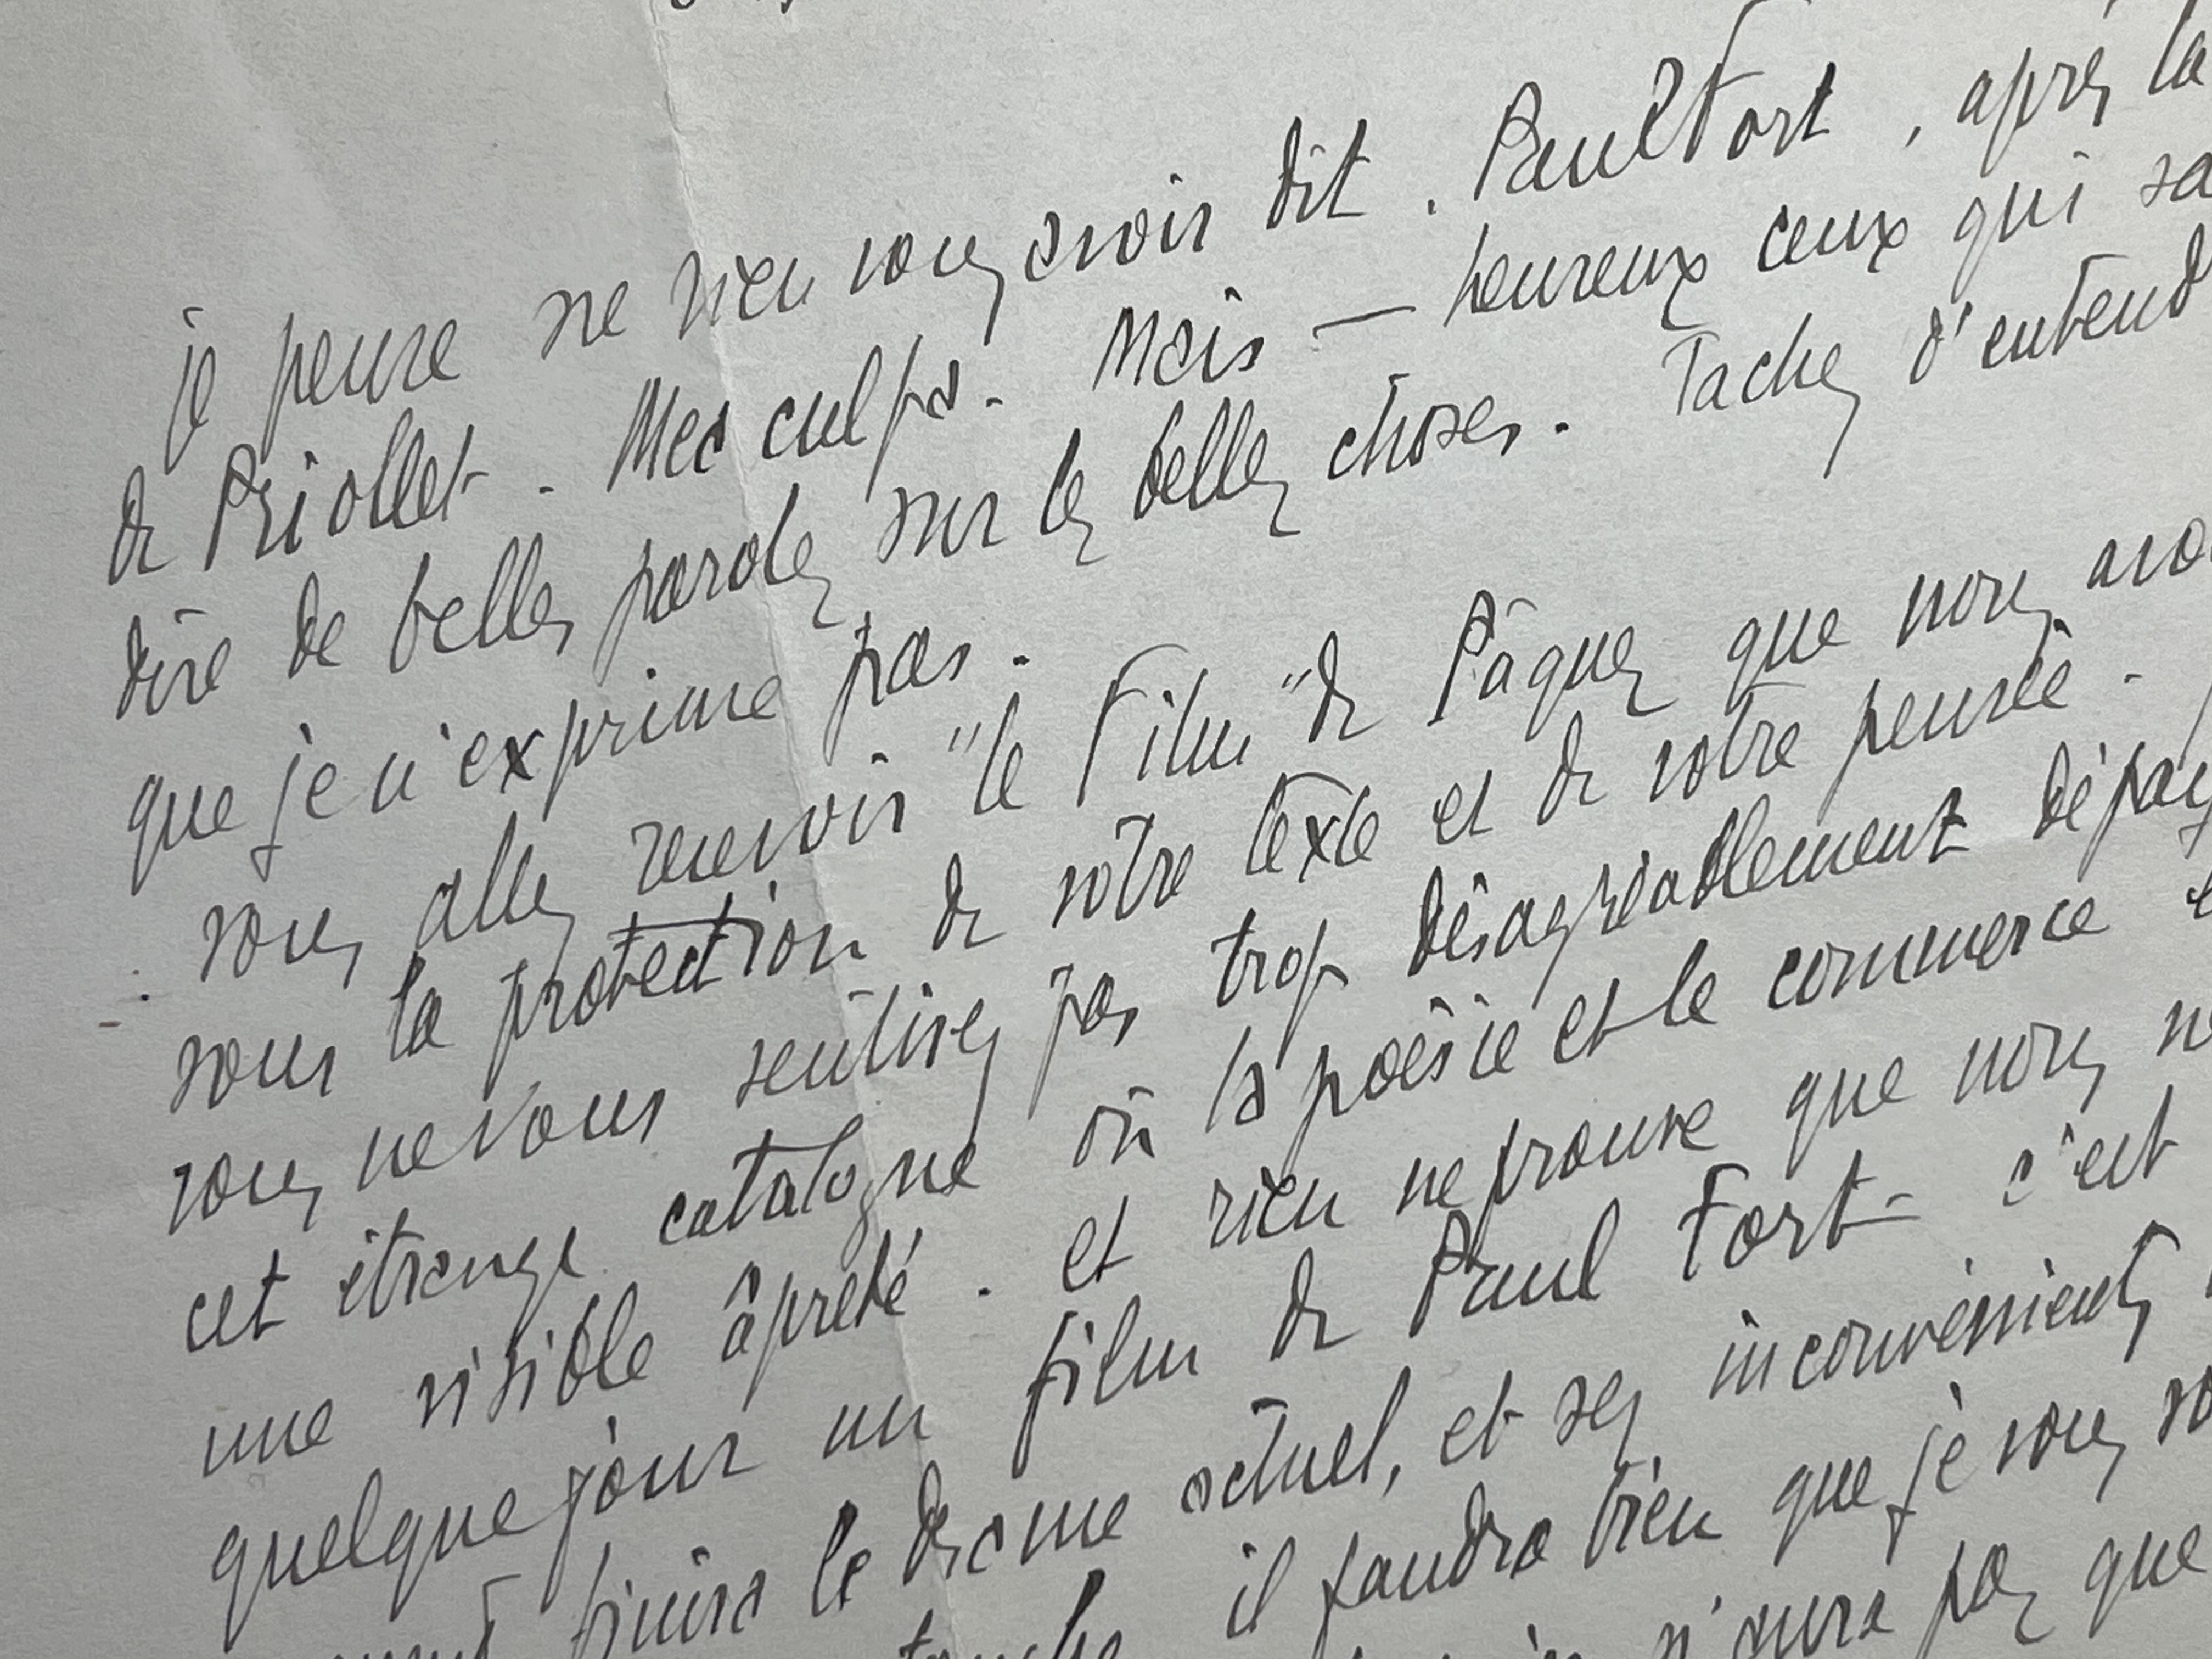 je pense ne rien vous avoir dit. Paul Fort, après la
de Priollet. Mea culpa. Mais — heureux ceux qui sa
dire de belles paroles sur les belles choses. Tachez d'entend
que je n'exprime pas.
vous allez recevoir "le Film" de Pâques que nous avo
sous la protection de votre texte et de votre pensée.
vous ne vous sentirez pas trop désagréablement dépay
cet étrange catalogue où la poésie et le commerce
une visible âpreté. et rien ne prouve que nous n
quelque jour un film de Paul Fort - c'est
finira le drame actuel, et ses inconvénients
il faudra bien que je vous
n'aura pas que